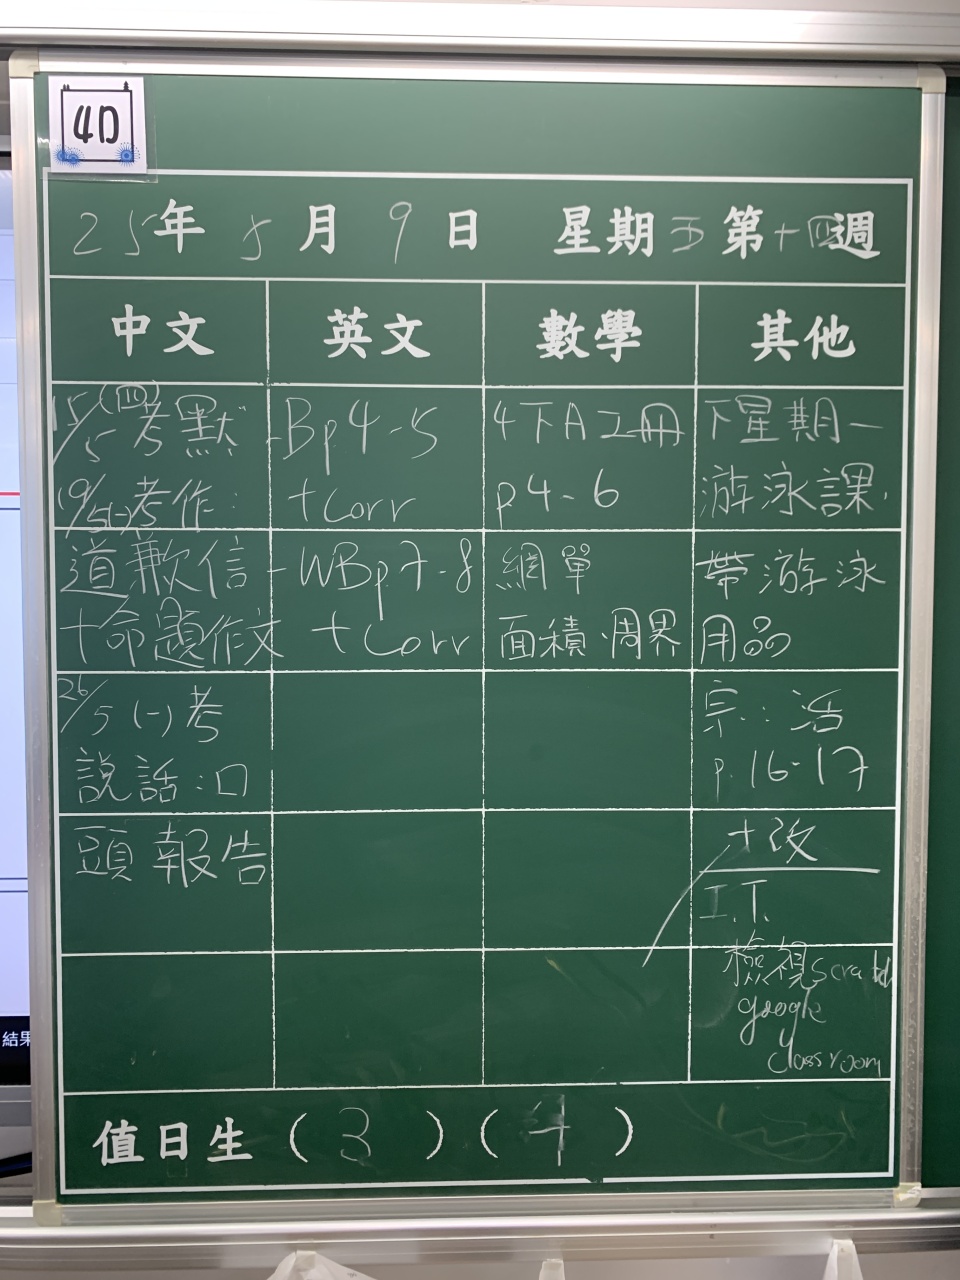 4D
25年 5月 9日 星期五 第十四週
中文 英文 數學 其他
15/5 (四)考默
19/5(一)考作:
道歉信
+命題作文
26/5 (一)考
說話:口
頭報告
-Bp4-5
+Corr
-WBp7-8
+Corr
4下A工冊
p4-6
網單
面積、周界
下星期一
游泳課,
帶游泳
用品
宗:活
p.16-17
+改
I.T.
檢視Scratch
google
classroom
值日生 (3) (4)
結果